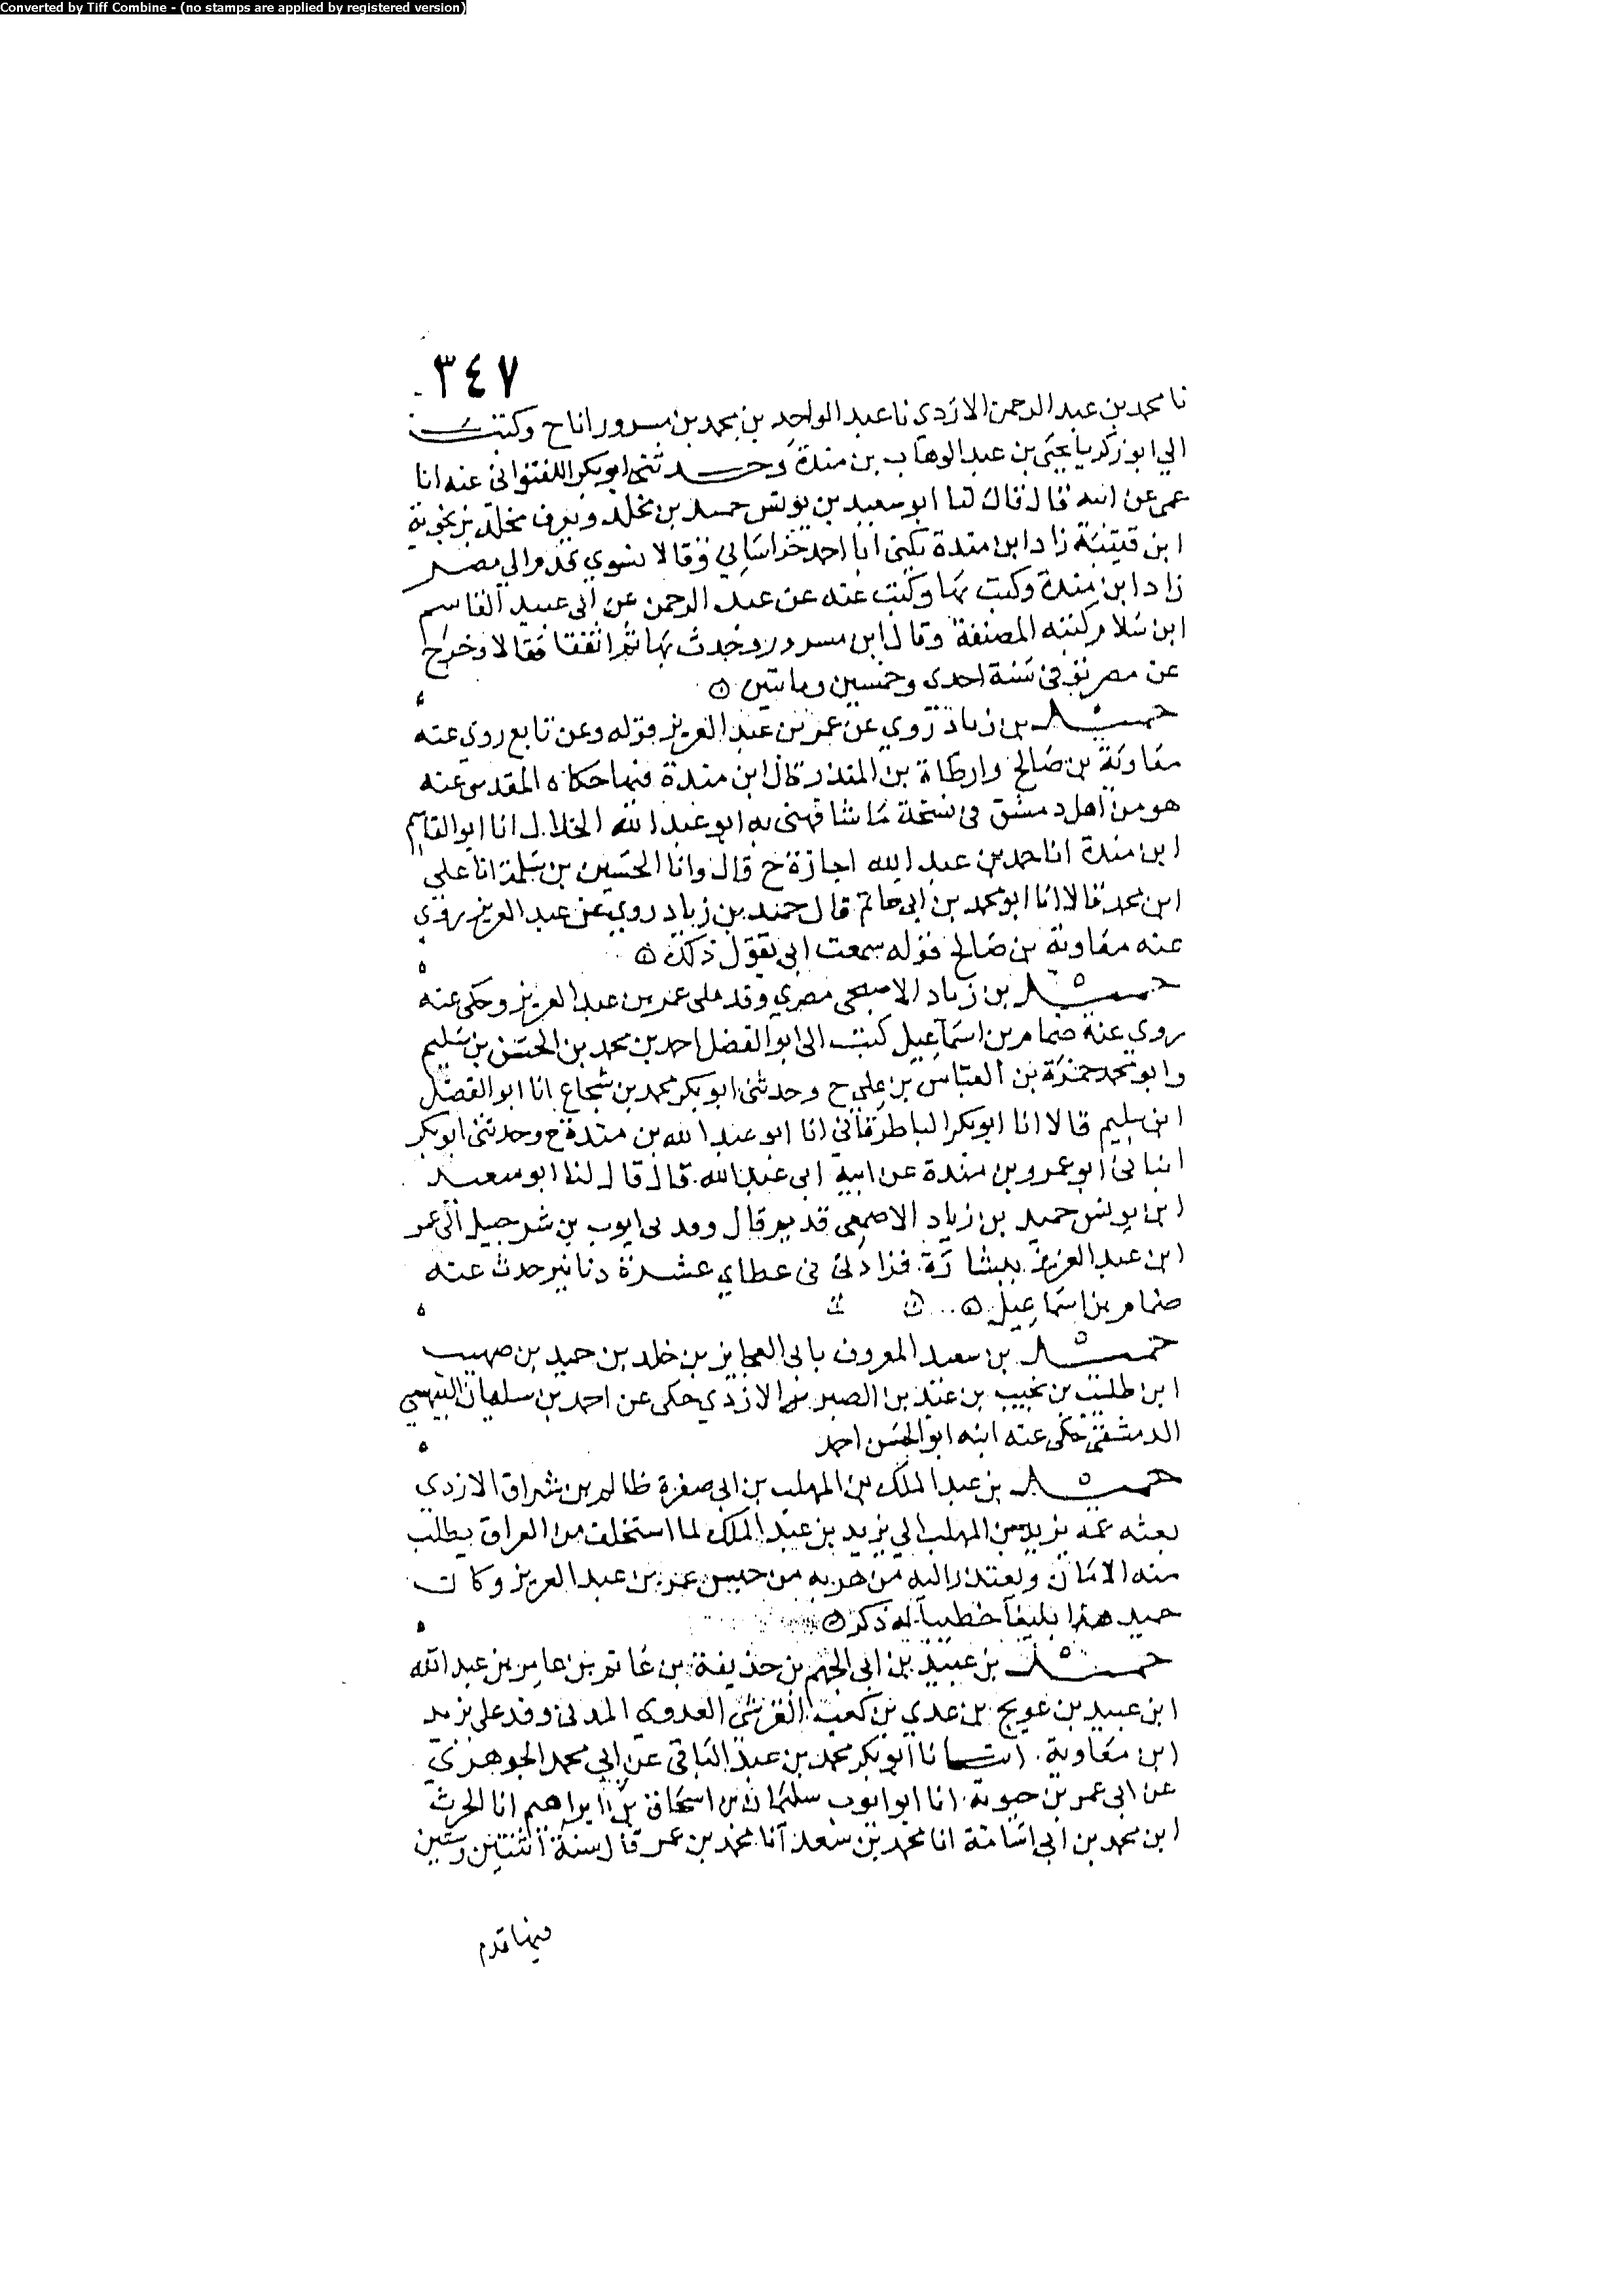 Converted by Tiff Combine - (no stamps are applied by registered version)
٣٤٧
نا محمد بن عبد الرحمن الازدي نا عبد الواحد بن محمد بن مسرور انا ح وكتب
الي ابو زكريا يحيى بن عبد الوهاب بن مندة وحدثني ابو بكر اللفتواني عنه انا
عمي عن ابيه قال قال لنا ابو سعيد بن يونس حميد بن مخلد ويعرف مخلد بزنجوية
ابن قتيبة زاد ابن مندة يكنى ابا احمد خراساني وقالا نسوي قدم الي مصر
زاد ابن مندة وكتب بها وكتب عنه عن عبد الرحمن عن ابي عبيد القاسم
ابن سلام كتبه المصنفة وقال ابن مسرور وحدث بها ثم اتفقا فقالا وخرج
عن مصر توفى سنة احدى وخمسين وماتين
حميد بن زياد روي عن عمر بن عبد العزيز قوله وعن نافع روى عنه
معاوية بن صالح وارطاة بن المنذر قال ابن مندة فيما حكاه المقدسي عنه
هو من اهل دمشق في نسخة ما شافهني به ابو عبد الله الخلال انا ابو القاسم
ابن مندة انا حمد بن عبد الله اجازة ح قال وانا الحسين بن سلمة انا علي
ابن محمد قالا انا ابو محمد بن ابي حاتم قال حميد بن زياد روي عن عبد العزيز روى
عنه معاوية بن صالح قوله سمعت ابي يقول ذلك
حميد بن زياد الاصبحي مصري وفد على عمر بن عبد العزيز وحكى عنه
روي عنه ضمام بن اسماعيل كتب الى ابو الفضل احمد بن محمد بن الحسن بن سليم
وابو محمد حمزة بن العباس بن علي ح وحدثني ابو بكر محمد بن شجاع انا ابو الفضل
ابن سليم قالا انا ابو بكر الباطرقاني انا ابو عبد الله بن مندة ح وحدثني ابو بكر
انبانى ابو عمرو بن مندة عن ابيه ابى عبد الله قال قال لنا ابو سعيد
ابن يونس حميد بن زياد الاصبحي قديم قال وفد بى ايوب بن شرحبيل الى عمر
ابن عبد العزيز ببشارة فزادني في عطاي عشرة دنانير حدث عنه
ضمام بن اسماعيل
حميد بن سعيد المعروف بابي العجايز بن خلد بن حميد بن صهيب
ابن طليب بن نجيب بن عبد بن الصبر الازدي حكى عن احمد بن سلمان
الدمشقي حكى عنه ابنه ابو الحسن احمد
حميد بن عبد الملك بن المهلب بن ابي صفرة ظالم بن شراق الازدي
بعثه عمه يزيد بن المهلب الي يزيد بن عبد الملك لما استخلف من العراق يطلب
منه الامان ويعتذر اليه من هربه من حبس عمر بن عبد العزيز وكان
حميد هذا بليغا خطيبا له ذكر
حميد بن عبيد بن ابى الجهم بن حذيفة بن غانم بن عامر بن عبد الله
ابن عبيد بن عويج بن عدي بن كعب القرشي العدوي المدني وفد على يزيد
ابن معاوية انبانا ابو بكر محمد بن عبد الباقى عن ابي محمد الجوهري
عن ابى عمر بن حيوية انا ابو ايوب سليمان بن اسحاق بن ابراهيم انا الحرث
ابن محمد بن ابي اسامة انا محمد بن سعد انا محمد بن عمر قال سنة اثنتين وستين
فيها قدم